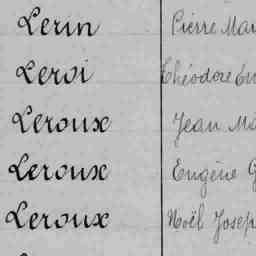 Lerin Pierre Mar
Leroi Théodore Em
Leroux Jean Ma
Leroux Eugène G
Leroux Noël Josep